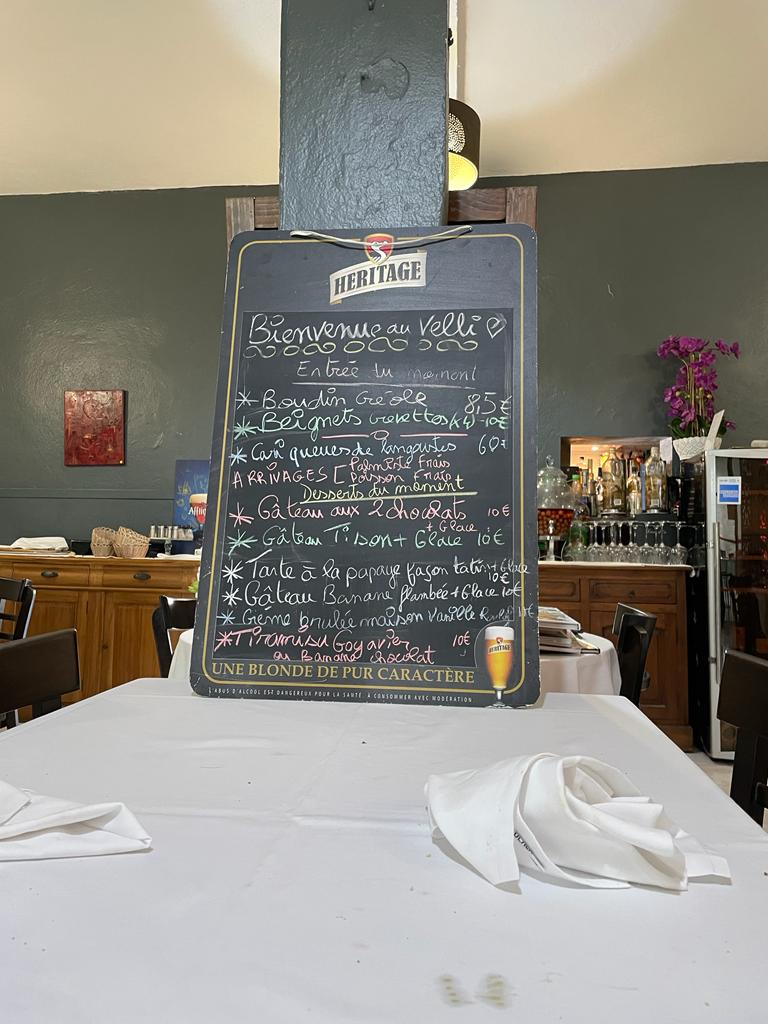 HERITAGE
Bienvenue au Velli
Entrée du moment
Boudin Créole 8,5€
Beignets Crevettes (x4) - 10€
Cari queues de langoustes 60€
ARRIVAGES [ Palmiste frais
Poisson frais
Desserts du moment
Gâteau aux 2 chocolats 10€
+ Glace
Gâteau Ti son + Glace 10€
Tarte à la papaye façon tatin + Glace
10€
Gâteau Banane flambée + Glace 10€
Crème brulée maison Vanille 10€
Tiramisu Goyavier 10€
ou Banane chocolat
HERITAGE
UNE BLONDE DE PUR CARACTÈRE
L'ABUS D'ALCOOL EST DANGEREUX POUR LA SANTÉ. À CONSOMMER AVEC MODÉRATION